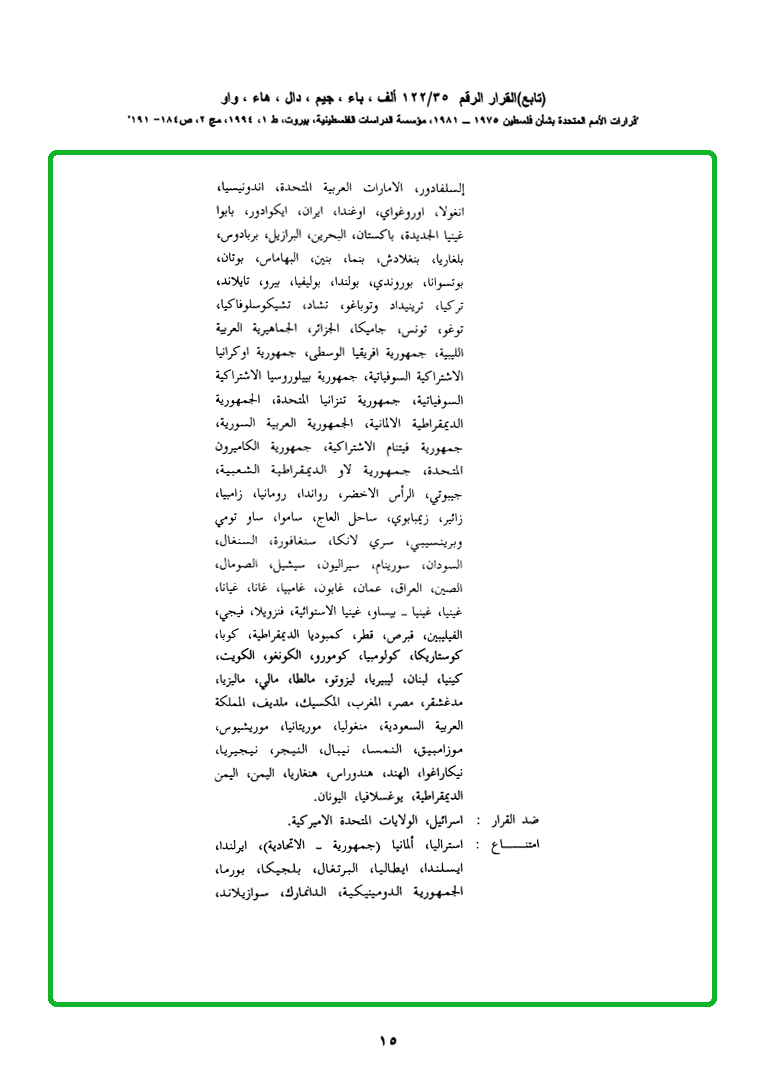 (تابع)القرار الرقم ١٢٢/٣٥ ألف ، باء ، جيم ، دال ، هاء ، واو
"قرارات الأمم المتحدة بشأن فلسطين ١٩٧٥ ــ ١٩٨١، مؤسسة الدراسات الفلسطينية، بيروت، ط ١، ١٩٩٤، مج ٢، ص١٨٤- ١٩١"
السلفادور، الامارات العربية المتحدة، اندونيسيا،
انغولا، اوروغواي، اوغندا، ايران، ايكوادور، بابوا
غينيا الجديدة، باكستان، البحرين، البرازيل، بربادوس،
بلغاريا، بنغلادش، بنما، بنين، البهاماس، بوتان،
بوتسوانا، بوروندي، بولندا، بوليفيا، بيرو، تايلاند،
تركيا، ترينيداد وتوباغو، تشاد، تشيكوسلوفاكيا،
توغو، تونس، جاميكا، الجزائر، الجماهيرية العربية
الليبية، جمهورية افريقيا الوسطى، جمهورية اوكرانيا
الاشتراكية السوفياتية، جمهورية بييلوروسيا الاشتراكية
السوفياتية، جمهورية تنزانيا المتحدة، الجمهورية
الديمقراطية الالمانية، الجمهورية العربية السورية،
جمهورية فيتنام الاشتراكية، جمهورية الكاميرون
المتحدة، جمهورية لاو الديمقراطية الشعبية،
جيبوتي، الرأس الاخضر، رواندا، رومانيا، زامبيا،
زائير، زيمبابوي، ساحل العاج، ساموا، ساو تومي
وبرينسيبي، سري لانكا، سنغافورة، السنغال،
السودان، سورينام، سيراليون، سيشيل، الصومال،
الصين، العراق، عمان، غابون، غامبيا، غانا، غيانا،
غينيا، غينيا ــ بيساو، غينيا الاستوائية، فنزويلا، فيجي،
الفيليبين، قبرص، قطر، كمبوديا الديمقراطية، كوبا،
كوستاريكا، كولومبيا، كومورو، الكونغو، الكويت،
كينيا، لبنان، ليبيريا، ليزوتو، مالطا، مالي، ماليزيا،
مدغشقر، مصر، المغرب، المكسيك، ملديف، المملكة
العربية السعودية، منغوليا، موريتانيا، موريشيوس،
موزامبيق، النمسا، نيبال، النيجر، نيجيريا،
نيكاراغوا، الهند، هندوراس، هنغاريا، اليمن، اليمن
الديمقراطية، يوغسلافيا، اليونان.
ضد القرار : اسرائيل، الولايات المتحدة الاميركية.
امتنــــــاع : استراليا، ألمانيا (جمهورية ــ الاتحادية)، ايرلندا،
ايسلندا، ايطاليا، البرتغال، بلجيكا، بورما،
الجمهورية الدومينيكية، الدانمارك، سوازيلاند،
١٥